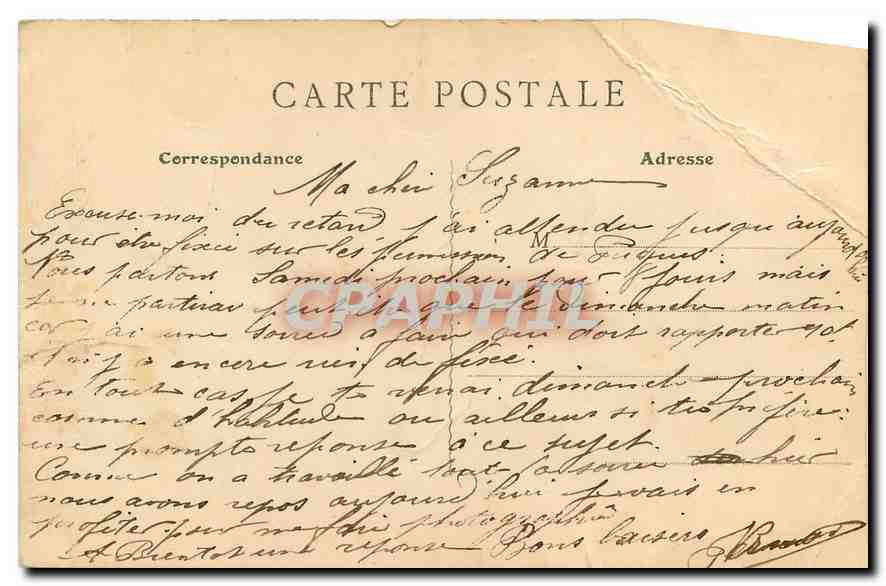 CARTE POSTALE
Correspondance
Adresse
Ma cher Suzanne
Excuse-moi du retard j'ai attendu jusqu'aujourd'hui
M
pour être fixée sur les permissions de Pâques.
Nous partons Samedi prochain pour 8 jours mais
je ne partirai peut être que le dimanche matin
car j'ai une soirée à faire qui doit rapporter
il n'y a encore rien de fixé.
En tout cas je te verrai dimanche prochain
comme d'habitude ou ailleurs si tu préfère:
une prompte reponse à ce sujet.
Comme on a travaillé tout la soirée hier
nous avons repos aujourd'hui je vais en
profiter pour me faire photographié
A Bientot une reponse Bons baisers
CPAPHIL